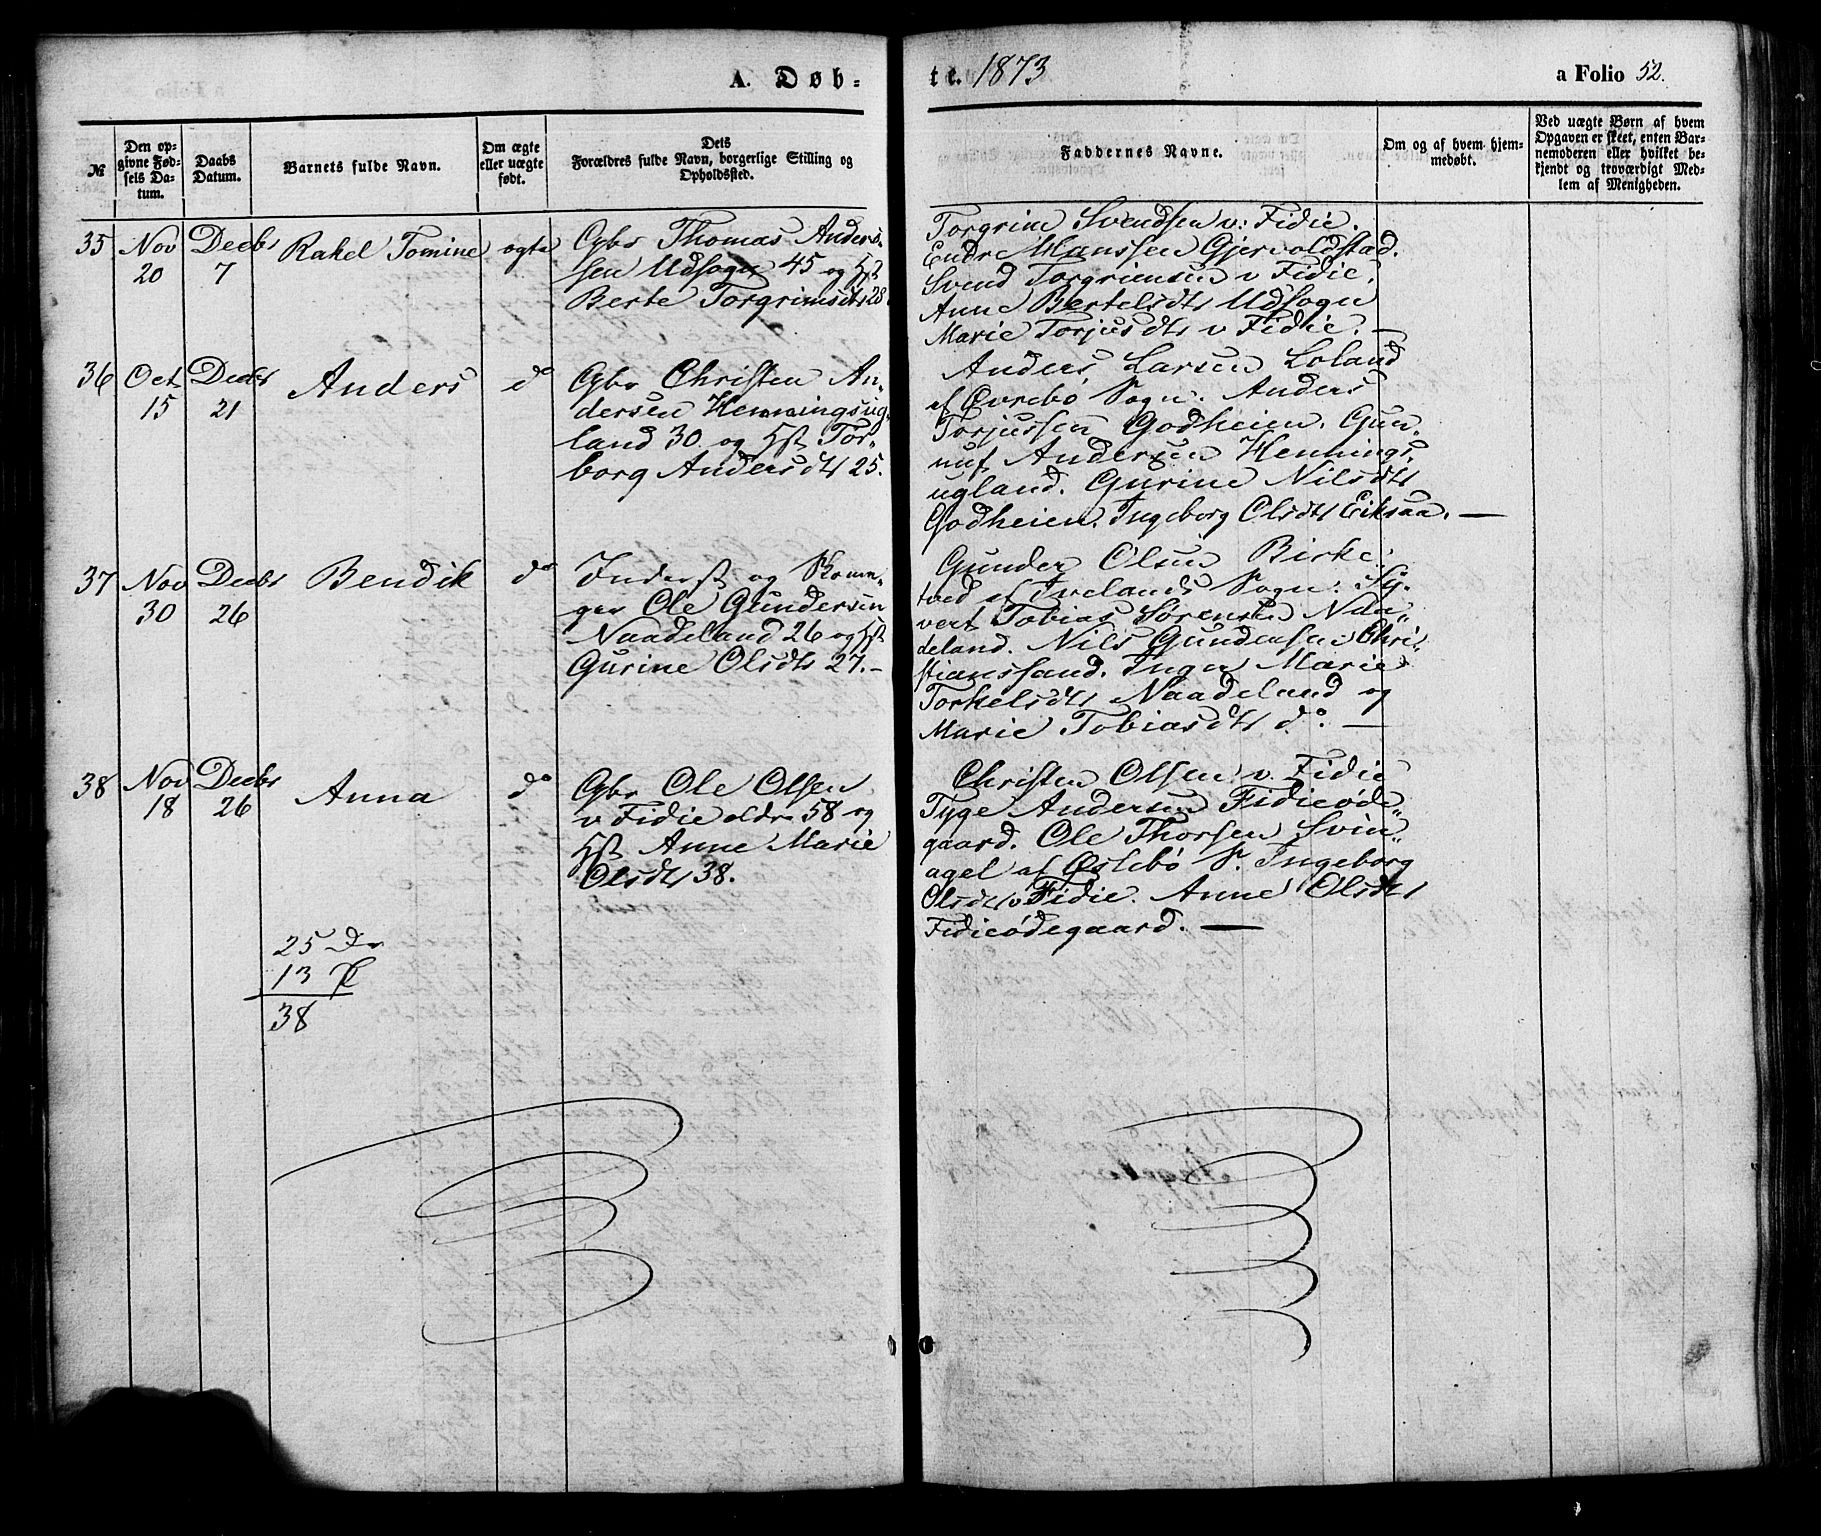 A. Døb-
te. 1873
a Folio 52.
№
Den op-
givne Fød-
sels Da-
tum.
Daabs
Datum.
Barnets fulde Navn.
Om ægte
eller uægte
født.
Dets
Forældres fulde Navn, borgerlige Stilling og
Opholdssted.
Faddernes Navne.
Om og af hvem hjem-
medøbt.
Ved uægte Børn af hvem
Opgaven er skeet, enten Bar-
nemoderen eller hvilket be-
kjendt og troværdigt Med-
lem af Menigheden.
35 Nov Decbr Rakel Tomine ægte
20 7
Gbr Thomas Anders-
sen Udsogn 45 og Hst
Berte Torgrimsdtr 28
Torgrim Svendsen v: Fidie.
Endre Hanssen Gjervoldstad.
Svend Torgrimsen v Fidie.
Anne Bertelsdtr Udsogn
Marie Torjusdtr v Fidie. —
36 Oct Decbr Anders do
15 21
Gbr Christen An-
dersen Henningsug-
land 30 og Hst Tor-
borg Andersdtr 25.
Anders Larsen Loland
af Øvrebø Sogn. Anders
Torjussen Godheien. Gun-
nuf Andersen Hennings-
ugland. Gurine Nilsdtr
Godheien. Ingeborg Olsdtr Eiksaa. —
37 Nov Decbr Bendik do
30 26
Inderst og Skoma-
ger Ole Gundersen
Naadeland 26 og Hst
Gurine Olsdtr 27. –
Gunder Olsen Birke-
tved af Ivelands Sogn. Sy-
vert Tobias Sørensen Naa-
deland. Nils Gundersen Chri-
stianssand. Inger Marie
Torkelsdtr Naadeland og
Marie Tobiasdtr do. —
38 Nov Decbr Anna do
18 26
Gbr Ole Olsen
v Fidie eldr 58 og
Hst Anne Marie
Olsdtr 38.
Christen Olsen v. Fidie
Tyge Andersen Fidieøde-
gaard. Ole Thorsen Svin-
agel af Øslebø S. Ingeborg
Olsdtr v Fidie. Anne Olsdtr
Fidieødegaard. —
25 Dr
13 P
38